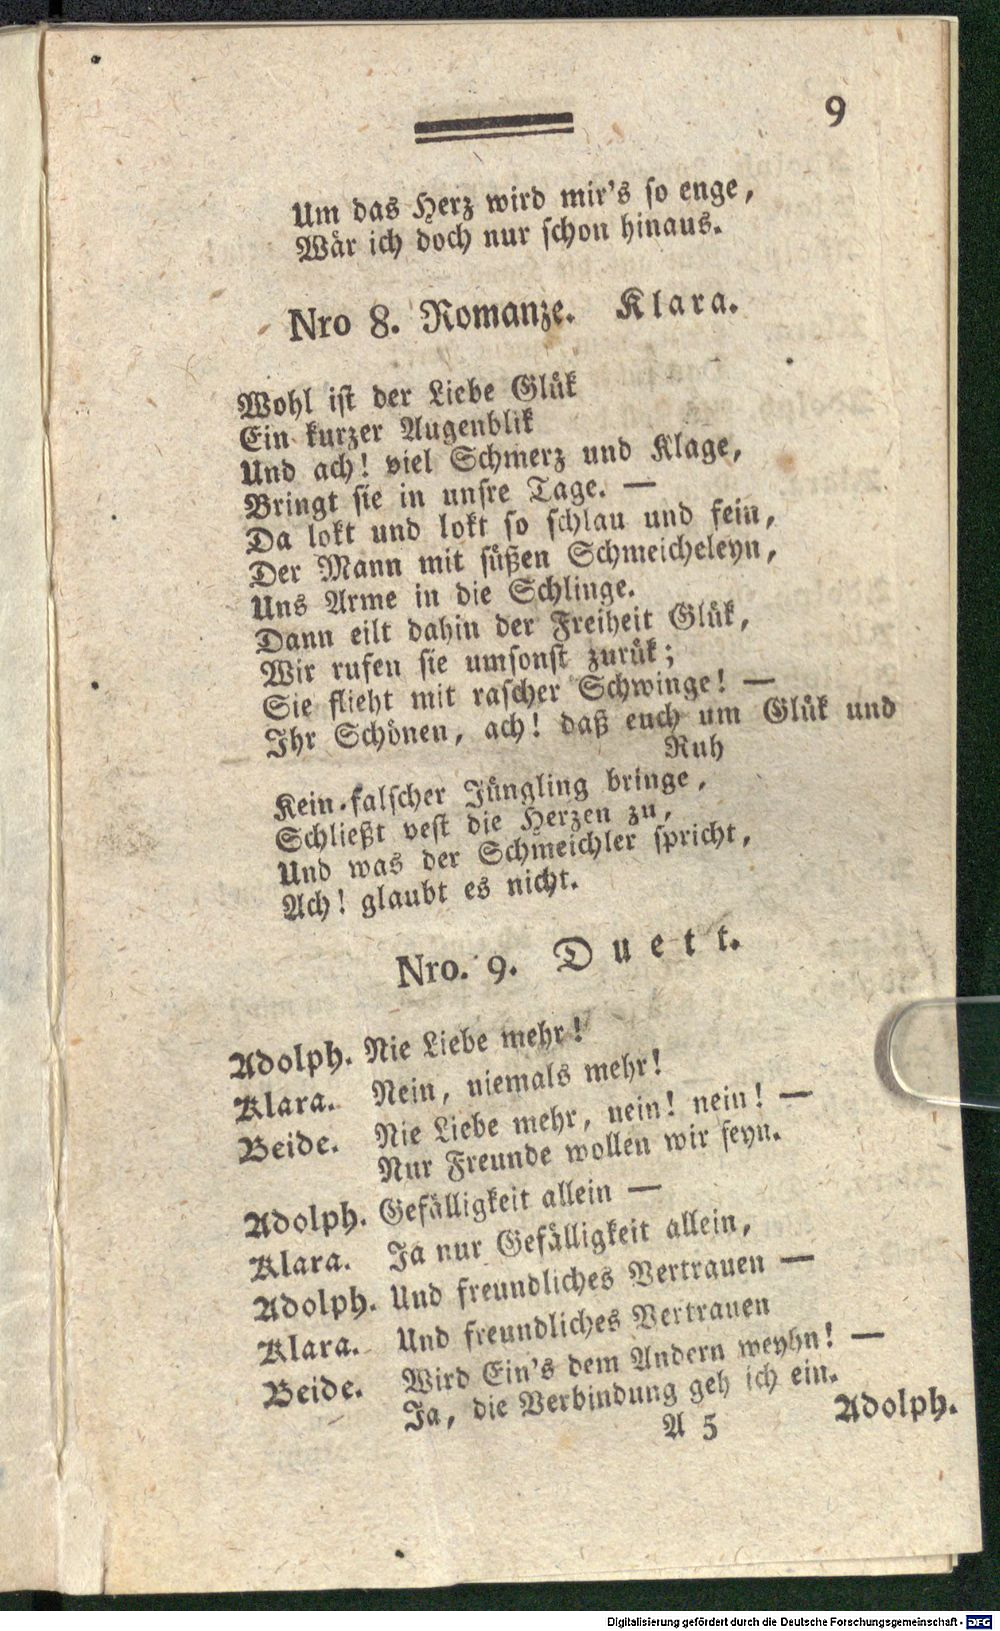 9
Um das Herz wird mir's so enge,
Wär ich doch nur schon hinaus.
Nro 8. Romanze. Klara.
Wohl ist der Liebe Glük
Ein kurzer Augenblik
Und ach! viel Schmerz und Klage,
Bringt sie in unsre Tage. —
Da lokt und lokt so schlau und fein,
Der Mann mit süßen Schmeicheleyn,
Uns Arme in die Schlinge.
Dann eilt dahin der Freiheit Glük,
Wir rufen sie umsonst zurük;
Sie flieht mit rascher Schwinge! —
Ihr Schönen, ach! daß euch um Glük und
Ruh
Kein falscher Jüngling bringe,
Schließt vest die Herzen zu,
Und was der Schmeichler spricht,
Ach! glaubt es nicht.
Nro. 9. Duett.
Adolph. Nie Liebe mehr!
Klara. Nein, niemals mehr!
Beide. Nie Liebe mehr, nein! nein! —
Nur Freunde wollen wir seyn.
Adolph. Gefälligkeit allein —
Klara. Ja nur Gefälligkeit allein,
Adolph. Und freundliches Vertrauen —
Klara. Und freundliches Vertrauen
Beide. Wird Ein's dem Andern weyhn! —
Ja, die Verbindung geh ich ein.
A 5 Adolph.
Digitalisierung gefördert durch die Deutsche Forschungsgemeinschaft - DFG